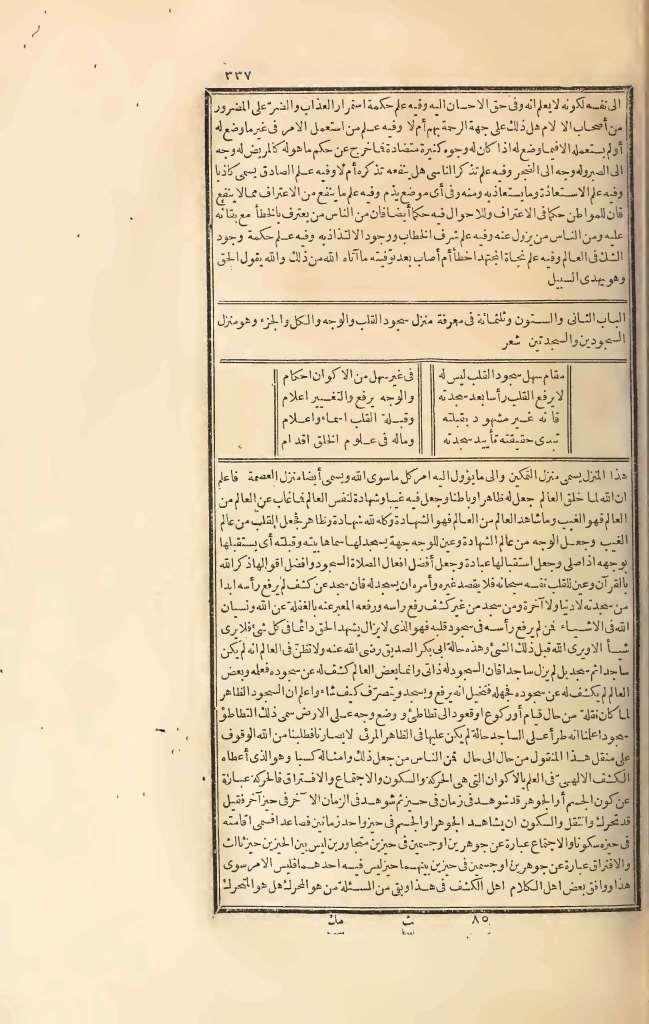 ٣٣٧
الى نفسه لكونه لا يعلم انه وفى حق الاحسان اليه وفيه علم حكمة استمرار العذاب والضر على المضرور
من أصحاب الآلام هل ذلك على جهة الرحمة بهم أم لا وفيه علم من استعمل الامر فى غير ما وضع له
أو لم يستعمله الا فيما وضع له اذا كان له وجوه كثيرة متضادة فما خرج عن حكم ما هو له كالمريض له وجه
الى الصبر وله وجه الى الضجر وفيه علم تذكر الناسى هل ينفعه تذكره أم لا وفيه علم الصادق يسمى كاذبا
وفيه علم الاستعاذة وما يستعاذ به ومنه وفى أى موضع يذم وفيه علم ما ينفع من الاعتراف مما لا ينفع
فان للمواطن حكما فى الاعتراف وللاحوال فيه حكما أيضا فان من الناس من يعترف بالخطأ مع بقائه
عليه ومن الناس من يزول عنه وفيه علم شرف الخطاب ووجود الالتذاذ به وفيه علم حكمة وجود
الشك فى العالم وفيه علم نجاة المجتهد اخطأ أم أصاب بعد توفيته ما آتاه الله من ذلك والله يقول الحق
وهو يهدى السبيل
الباب الثانى والستون وثلثمائة فى معرفة منزل سجود القلب والوجه والكل والجزء وهو منزل
السجودين والسجدتين شعر
مقام سهل سجود القلب ليس له فى غير سهل من الاكوان احكام
لا يرفع القلب رأسا بعد سجدته والوجه يرفع والتغيير اعلام
فانه غير مشهود بقبلته وقبلة القلب اسماء واعلام
تبدى حقيقته تأييد سجدته وماله فى علوم الخلق اقدام
هذا المنزل يسمى منزل التمكين والى ما يؤول اليه امر كل ما سوى الله ويسمى أيضا منزل العصمة فاعلم
ان الله لما خلق العالم جعل له ظاهرا وباطنا وجعل فيه غيبا وشهادة لنفس العالم فما غاب عن العالم من
العالم فهو الغيب وما شاهد العالم من العالم فهو الشهادة وكله لله شهادة وظاهر فجعل القلب من عالم
الغيب وجعل الوجه من عالم الشهادة وعين للوجه جهة يسجد لها سماها بيته وقبلته أى يستقبلها
بوجهه اذا صلى وجعل استقبالها عبادة وجعل أفضل افعال الصلاة السجود وافضل اقوالها ذكر الله
بالقرآن وعين للقلب نفسه سبحانه فلا يقصد غيره وأمره ان يسجد له فان سجد عن كشف لم يرفع رأسه ابدا
من سجدته لا دنيا ولا آخرة ومن سجد من غير كشف رفع راسه ورفعه المعبر عنه بالغفلة عن الله ونسيان
الله فى الاشياء فمن لم يرفع رأسه فى سجود قلبه فهو الذى لا يزال يشهد الحق دائما فى كل شئ فلا يرى
شيأ الا ويرى الله قبل ذلك الشئ وهذه حالة ابى بكر الصديق رضى الله عنه ولا تظن فى العالم انه لم يكن
ساجدا ثم سجد بل لم يزل ساجدا فان السجود له ذاتى وانما بعض العالم كشف له عن سجوده فعلمه وبعض
العالم لم يكشف له عن سجوده فجهله فتخيل انه يرفع ويسجد ويتصرف كيف شاء واعلم ان السجود الظاهر
لما كان نقلة من حال قيام أو ركوع او قعود الى تطاطئ ووضع وجه على الارض سمى ذلك التطاطؤ
سجودا علمنا انه طرأ على الساجد حالة لم يكن عليها فى الظاهر المرئى لابصارنا فطلبنا من الله الوقوف
على منقل هذا المنقول من حال الى حال فمن الناس من جعل ذلك وامثاله كسبا وهو الذى أعطاه
الكشف الالهى فى العلم بالاكوان التى هى الحركة والسكون والاجتماع والافتراق فالحركة عبارة
عن كون الجسم أو الجوهر قد شوهد فى زمان فى حيز ثم شوهد فى الزمان الآخر فى حيز آخر فقيل
قد تحرك وانتقل والسكون ان يشاهد الجوهر او الجسم فى حيز واحد زمانين فصاعدا فسمى اقامته
فى حيزه سكونا والاجتماع عبارة عن جوهرين او جسمين فى حيزين متجاورين ليس بين الحيزين حيز ثالث
والافتراق عبارة عن جوهرين او جسمين فى حيزين بينهما حيز ليس فيه احدهما فليس الامر سوى
هذا ووافق بعض اهل الكلام اهل الكشف فى هذا وبقى من المسئلة من هو المحرك هل هو المتحرك
٨٥ ث مك